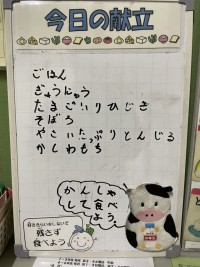 今日の献立
ごはん
ぎゅうにゅう
たまご入りひじき
そぼろ
やさいたっぷりとんじる
かしわもち
かんしゃ
して食べ
よう。
残さず
食べよう